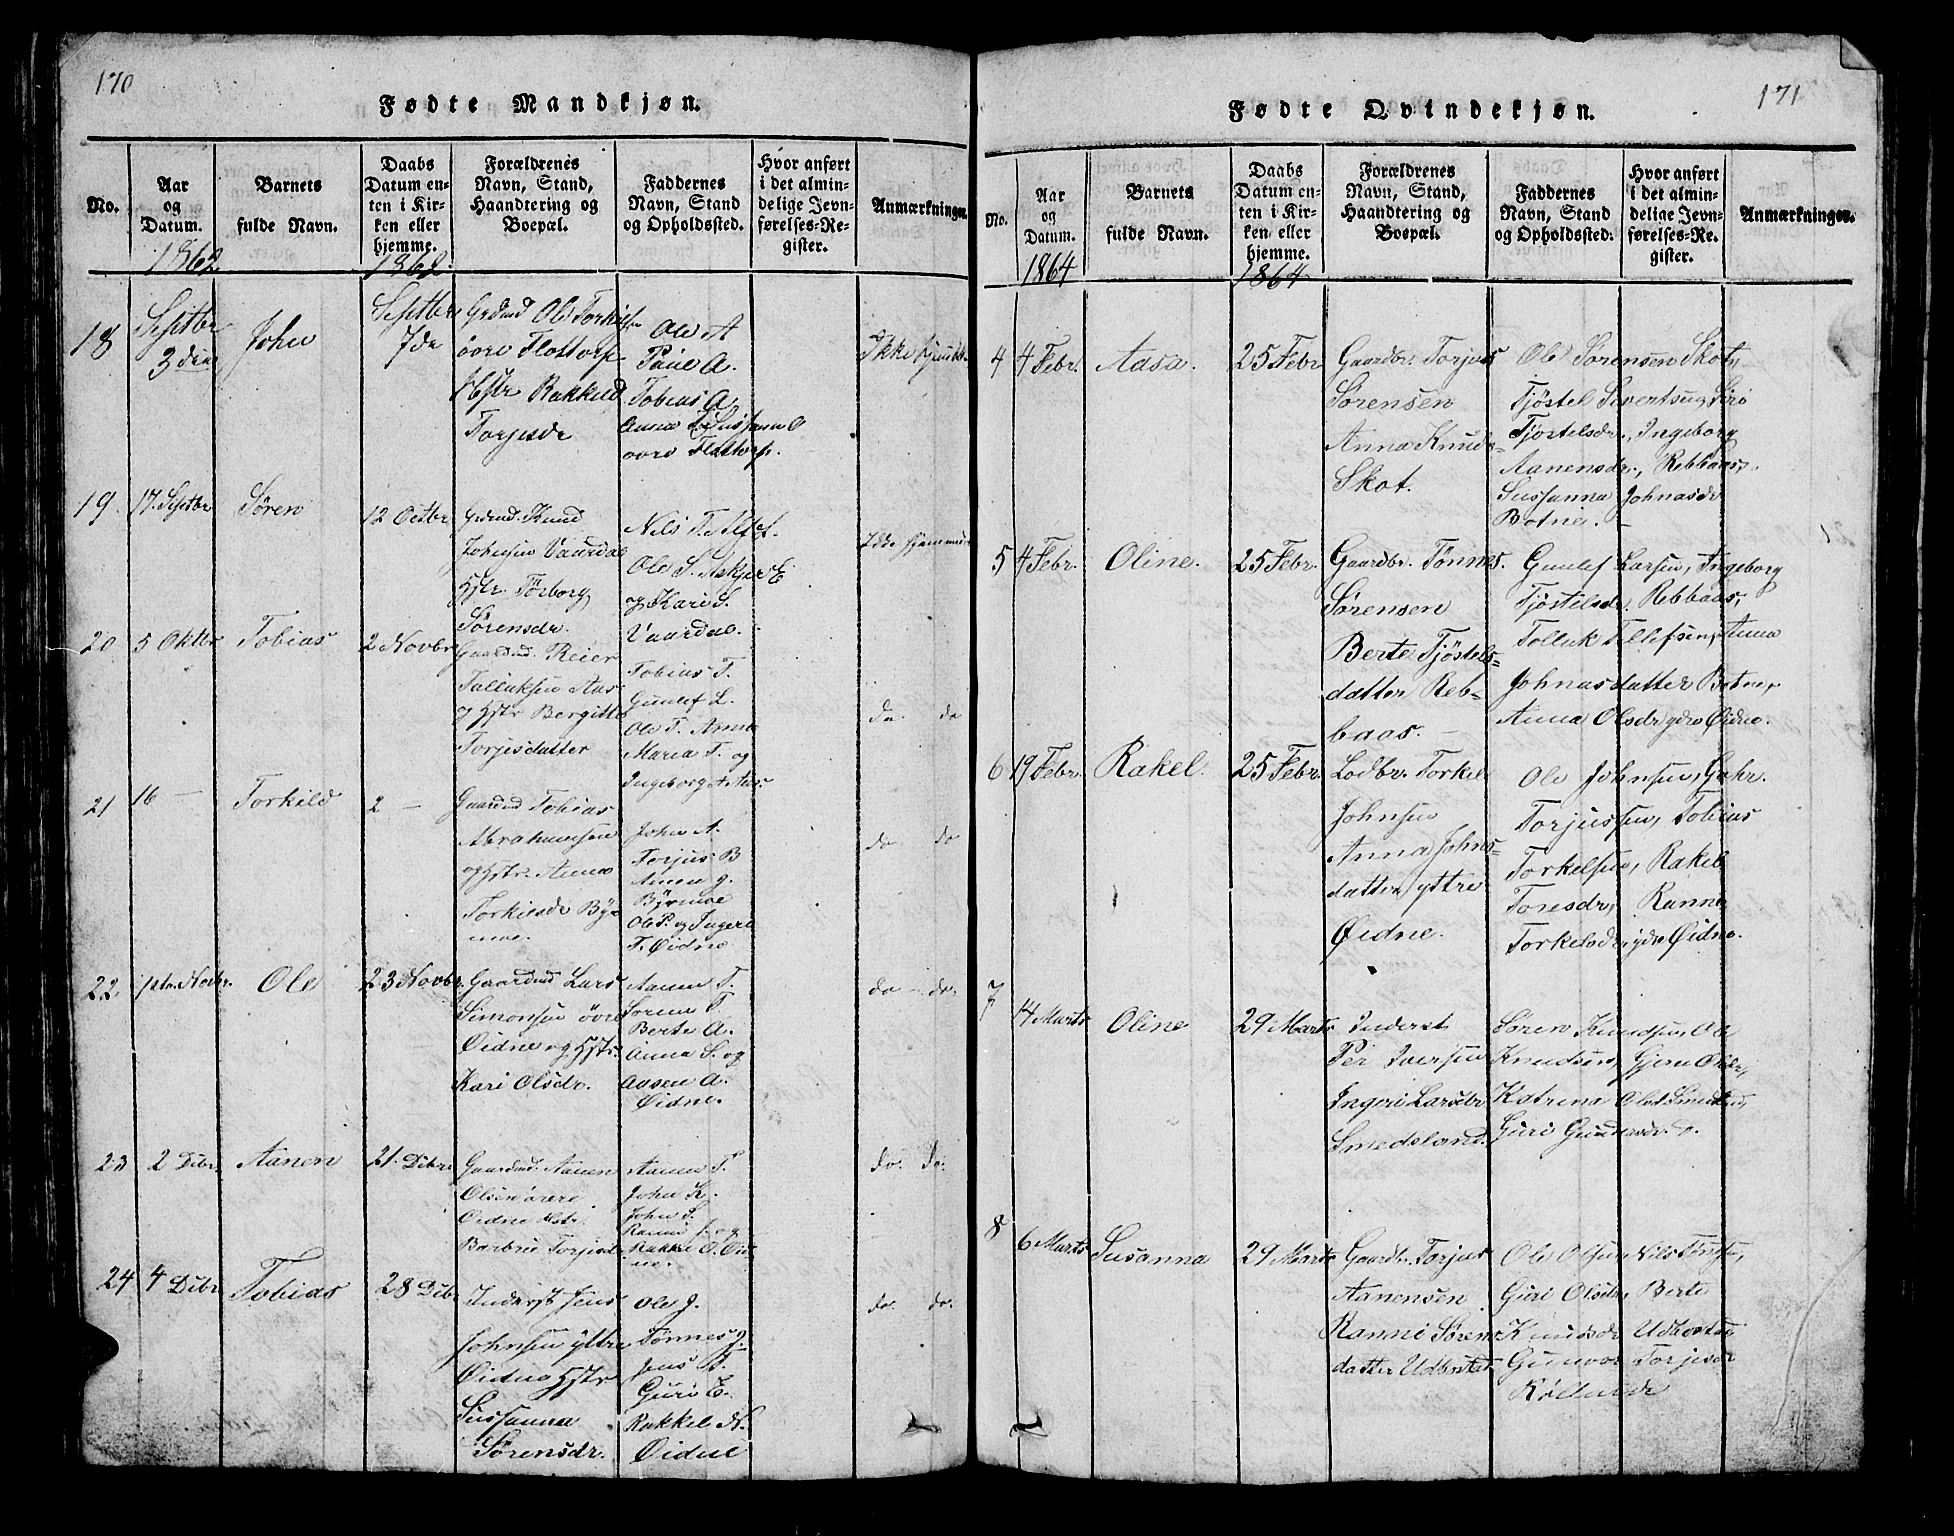 170
Fødte Mandkjøn.
No.
Aar
og
Datum.
1862
Barnets
fulde Navn.
Daabs
Datum en-
ten i Kir-
ken eller
hjemme.
1862
Forældrenes
Navn, Stand,
Haandtering og
Boepæl.
Faddernes
Navn, Stand
og Opholdssted.
Hvor anført
i det almin-
delige Jevn-
førelses-Re-
gister.
Anmærkninger.
18
Septbr
3 die
John
Septbr
7de
Ole Torkilsen
øvre Flottorp
Hstr Rakkild
Torjesdr
Ole A
Paul A.
Tobias A
Anna
øvre Flottorp.
Ikke
19.
17. Septbr
Søren
12 Octbr
Knud
Johnsen Vaardal
Hstr. Törborg
Sørensdr.
Nils T.
Ole S. Askjer
og Kari S.
Vaardal.
Ikke
20
5 Oktbr
Tobias
2 Novbr
Gaardmd. Reier
Talluksen Aas
og Hstr Bergitte
Torjesdatter
Tobias T.
Gunlef L.
Ole T. Anne
Maria T. og
Ingeborg A. Aas
do. do
21
16 —
Torkild
2 —
Gaardmd Tobias
Abrahamsen
og Hstr. Anna
Torkilsdr Byr
moe.
John A.
Torjus B
Aanen g.
Byrmoe
Ole P. og Ingeri
T. Øidne
do do
22
1ste Novbr.
Ole
23 Novbr.
Gaardmd Lars
Simonsen øvre
Øidne og Hstr.
Kari Olsdr.
Aanen T.
Søren T.
Berte A.
Anna S. og
Aasen A.
Øidne.
do - do.
23
2 Dcbr
Aanen
21. Dcbr
Gaardmd. Aanen
Olsen øvre
Øidne Hstr.
Barbru Torjesd
Aanen T.
John K.
John S.
Ranni J. og
Rakkel O. Øid
ne.
do. do.
24
4 Dcbr
Tobias
28 Dcbr
Inderst Jens
Johnsen yttre
Øidne Hstr
Sussanna
Sørensdr.
Ole J.
Tønnes J.
Jens T.
Guri E.
Rakkel N.
Øidne
do. do.
171
Fødte Qvindekjøn.
No.
Aar
og
Datum.
1864
Barnets
fulde Navn.
Daabs
Datum en-
ten i Kir-
ken eller
hjemme.
1864
Forældrenes
Navn, Stand,
Haandtering og
Boepæl.
Faddernes
Navn, Stand
og Opholdssted.
Hvor anført
i det almin-
delige Jevn-
førelses-Re-
gister.
Anmærkninger.
4
4 Febr.
Aasa.
25 Febr
Gaardbr. Torjus
Sørensen
Anna Knuds-
Skot.
Ole Sørensen Skot,
Tjøstel Sivertsen, Siri
Tjøstelsdr., Ingeborg
Aanensdr., Rebbaas,
Sussanna Johnasdr
Botne. —
5
4 Febr.
Oline.
25 Febr.
Gaardbr. Tønnes.
Sørensen
Berte Tjøstels-
datter Reb-
baas. —
Gunlef Larsen, Ingeborg
Tjøstelsdr. Rebbaas,
Tolluk Tellefsen, Anna
Johnasdatter Botne,
Anna Olsdr ydre Øidne.
6
19 Febr.
Rakel.
25 Febr.
Lodbr. Torkel
Johnsen
Anna Johns-
datter yttre
Øidne.
Ole Johnsen, Gahr.
Torjussen, Tobias
Torkelsen, Rakel
Toresdr, Ranne
Torkelsdr ydre Øidne.
7
14 Marts
Oline
29 Marts
Inderst
Per Iversen
Ingeri Larsdr
Smedsland.
Søren Knudsen, Ole
Knudsen, Gjeru Olsdr,
Katrina Olsd Smedsl,
Guri Gundersdr. do.
8
6 Marts
Susanna
29 Marts
Gaardbr. Torjus
Aanensen
Ranni Sørens
datter Udbustad
Ole Olsen Nils Tønsen,
Guri Olsdr, Berte
Knudsdr Udbostad
Gunvor Torjesdr